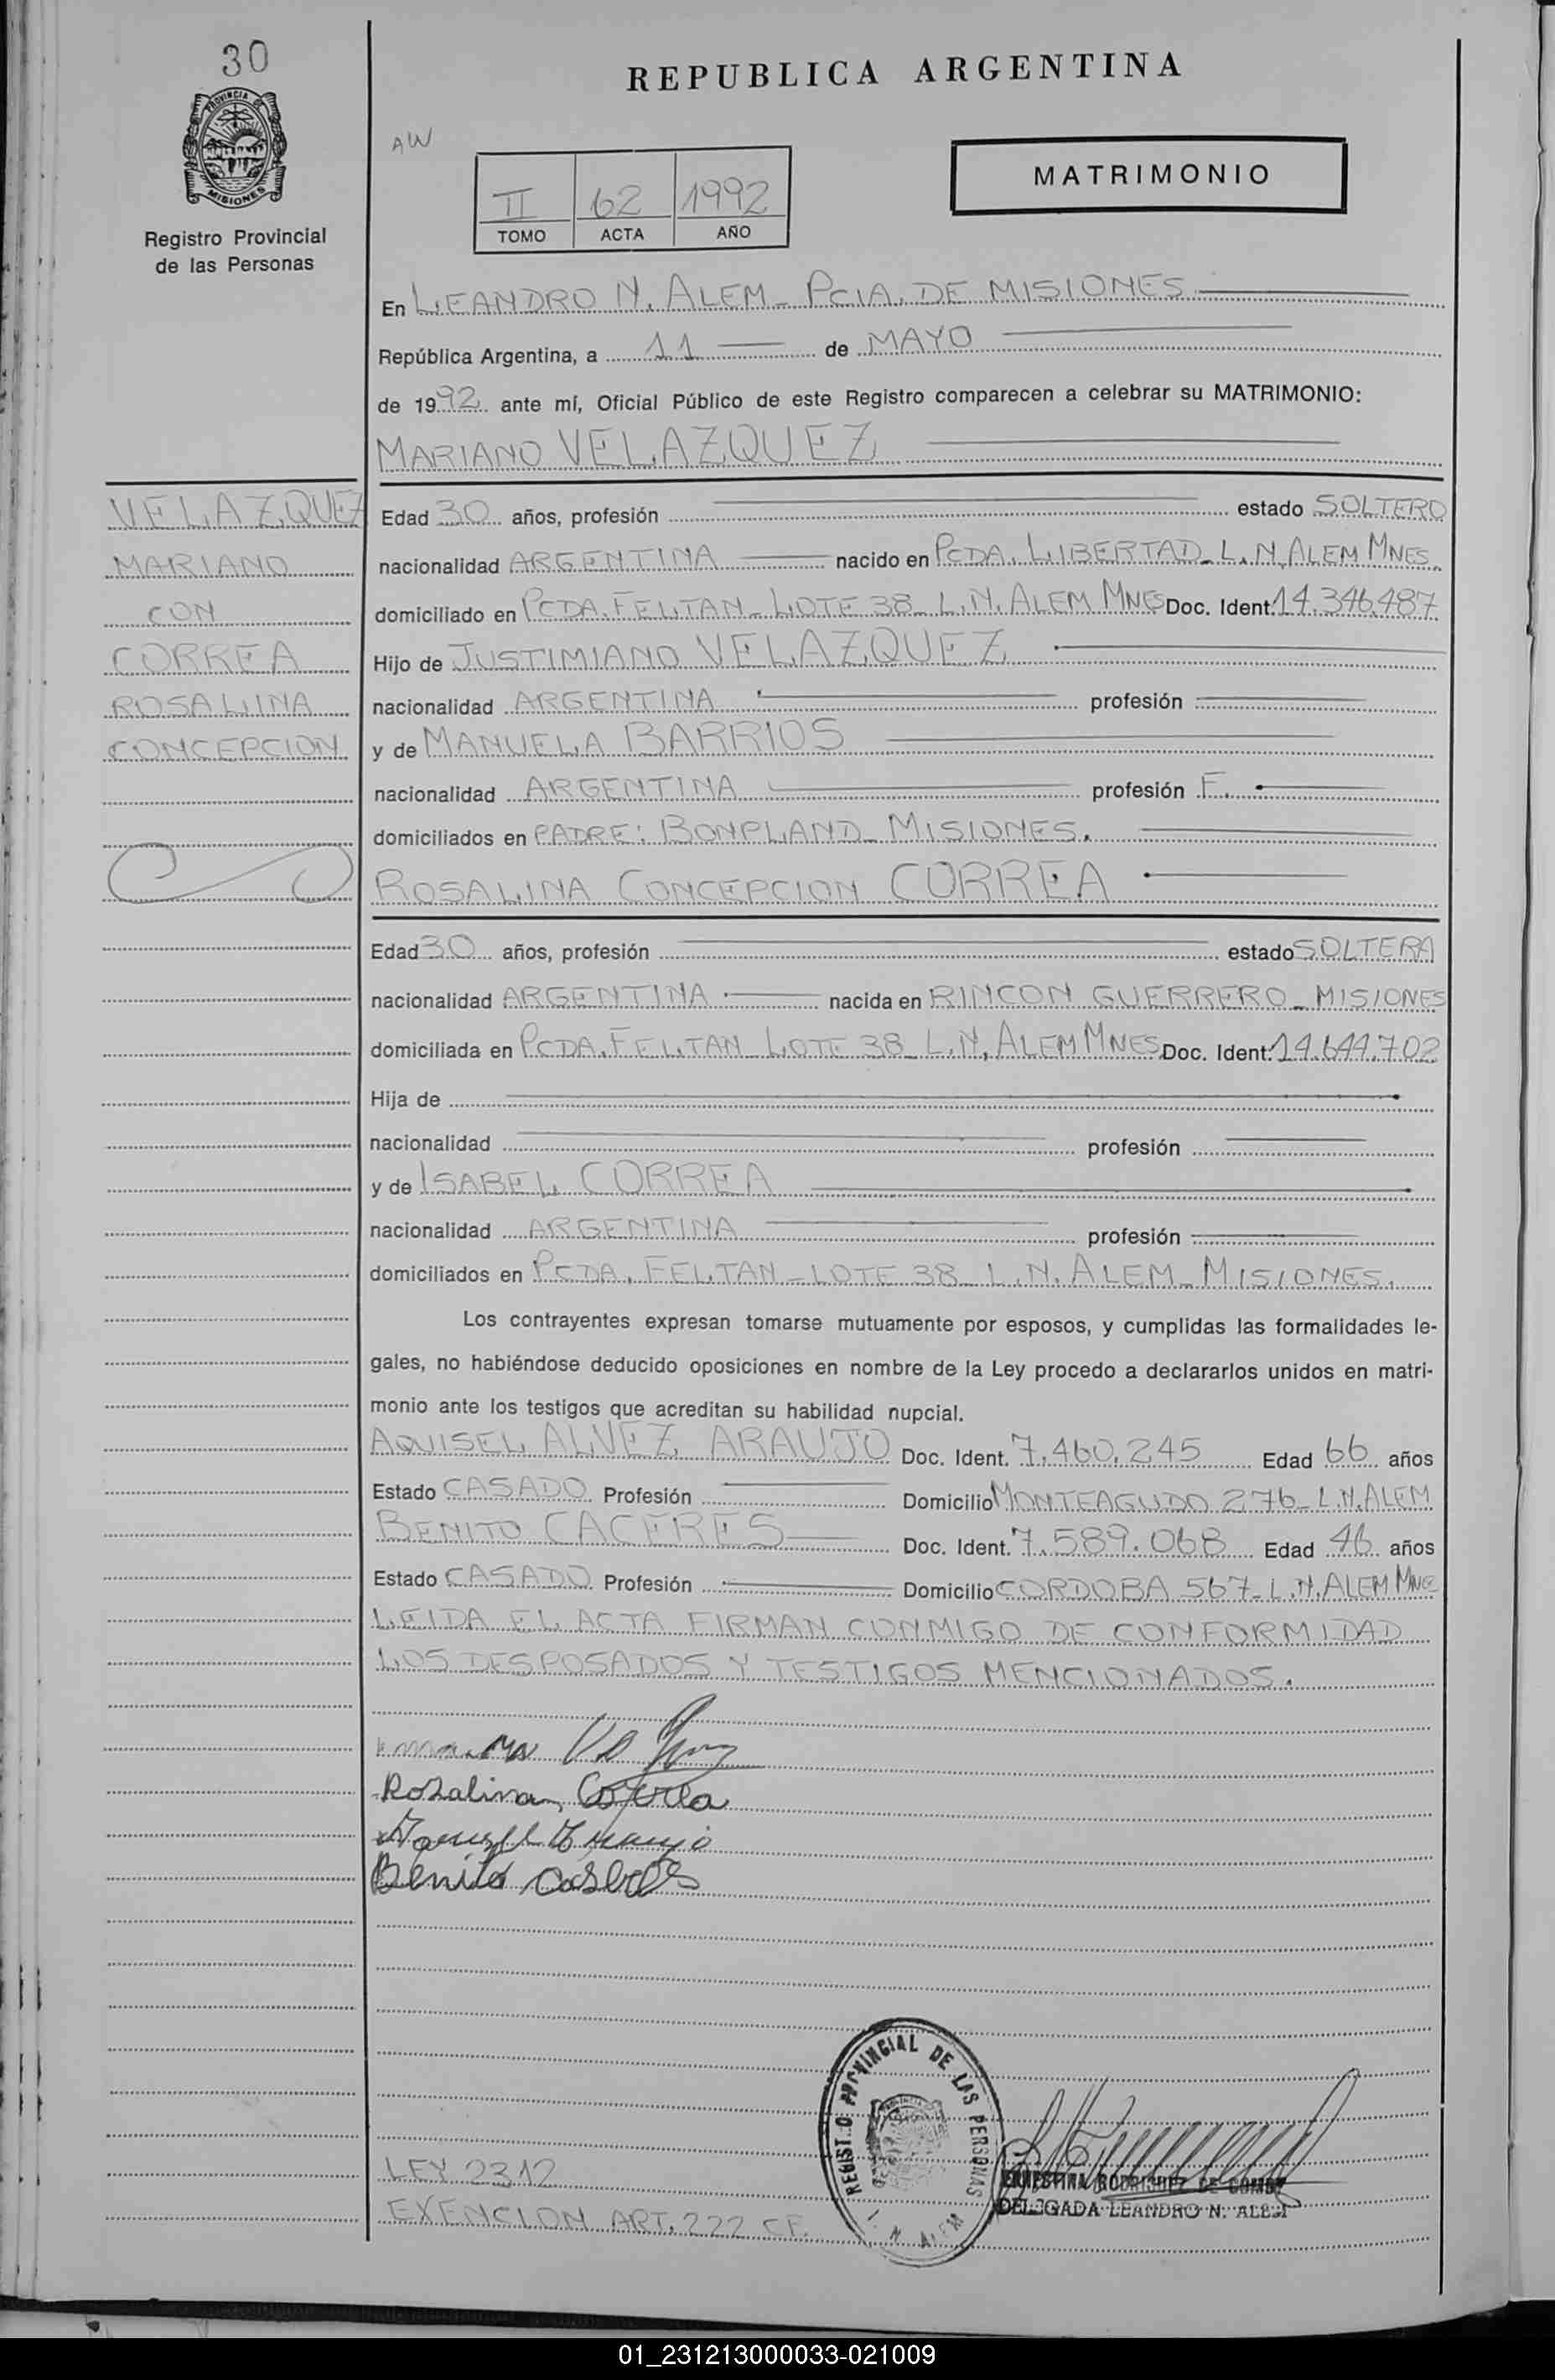 30
PROVINCIA DE
MISIONES
Registro Provincial
de las Personas
REPUBLICA ARGENTINA
AW
II 62 1992
TOMO ACTA AÑO
MATRIMONIO
En LEANDRO N. ALEM - PCIA. DE MISIONES
República Argentina, a 11 de MAYO
de 1992 ante mí, Oficial Público de este Registro comparecen a celebrar su MATRIMONIO:
MARIANO VELAZQUEZ
VELAZQUEZ
MARIANO
CON
CORREA
ROSALINA
CONCEPCION
Edad 30 años, profesión estado SOLTERO
nacionalidad ARGENTINA nacido en PCDA. LIBERTAD - L. N. ALEM MNES.
domiciliado en PCDA. FELTAN - LOTE 38 - L. N. ALEM MNES Doc. Ident. 14.346.487
Hijo de JUSTIMIANO VELAZQUEZ
nacionalidad ARGENTINA profesión
y de MANUELA BARRIOS
nacionalidad ARGENTINA profesión F.
domiciliados en PADRE: BONPLAND - MISIONES.
ROSALINA CONCEPCION CORREA
Edad 30 años, profesión estado SOLTERA
nacionalidad ARGENTINA nacida en RINCON GUERRERO - MISIONES
domiciliada en PCDA. FELTAN LOTE 38 - L. N. ALEM MNES Doc. Ident. 14.644.702
Hija de
nacionalidad profesión
y de ISABEL CORREA
nacionalidad ARGENTINA profesión
domiciliados en PCDA. FELTAN - LOTE 38 - L. N. ALEM - MISIONES.
Los contrayentes expresan tomarse mutuamente por esposos, y cumplidas las formalidades le-
gales, no habiéndose deducido oposiciones en nombre de la Ley procedo a declararlos unidos en matri-
monio ante los testigos que acreditan su habilidad nupcial.
AQUISEL ALVEZ ARAUJO Doc. Ident. 7.460.245 Edad 66 años
Estado CASADO Profesión Domicilio MONTEAGUDO 276 - L. N. ALEM
BENITO CACERES Doc. Ident. 7.589.068 Edad 46 años
Estado CASADO Profesión Domicilio CORDOBA 567 - L. N. ALEM MNES
LEIDA EL ACTA FIRMAN CONMIGO DE CONFORMIDAD
LOS DESPOSADOS Y TESTIGOS MENCIONADOS.
Rozalina Correa
Benito
REGISTRO PROVINCIAL DE LAS PERSONAS
L. N. ALEM
ERNESTINA RODRIGUEZ DE
DELEGADA LEANDRO N. ALEM
LEY 2312
EXENCION ART. 222 CF.
01_231213000033-021009